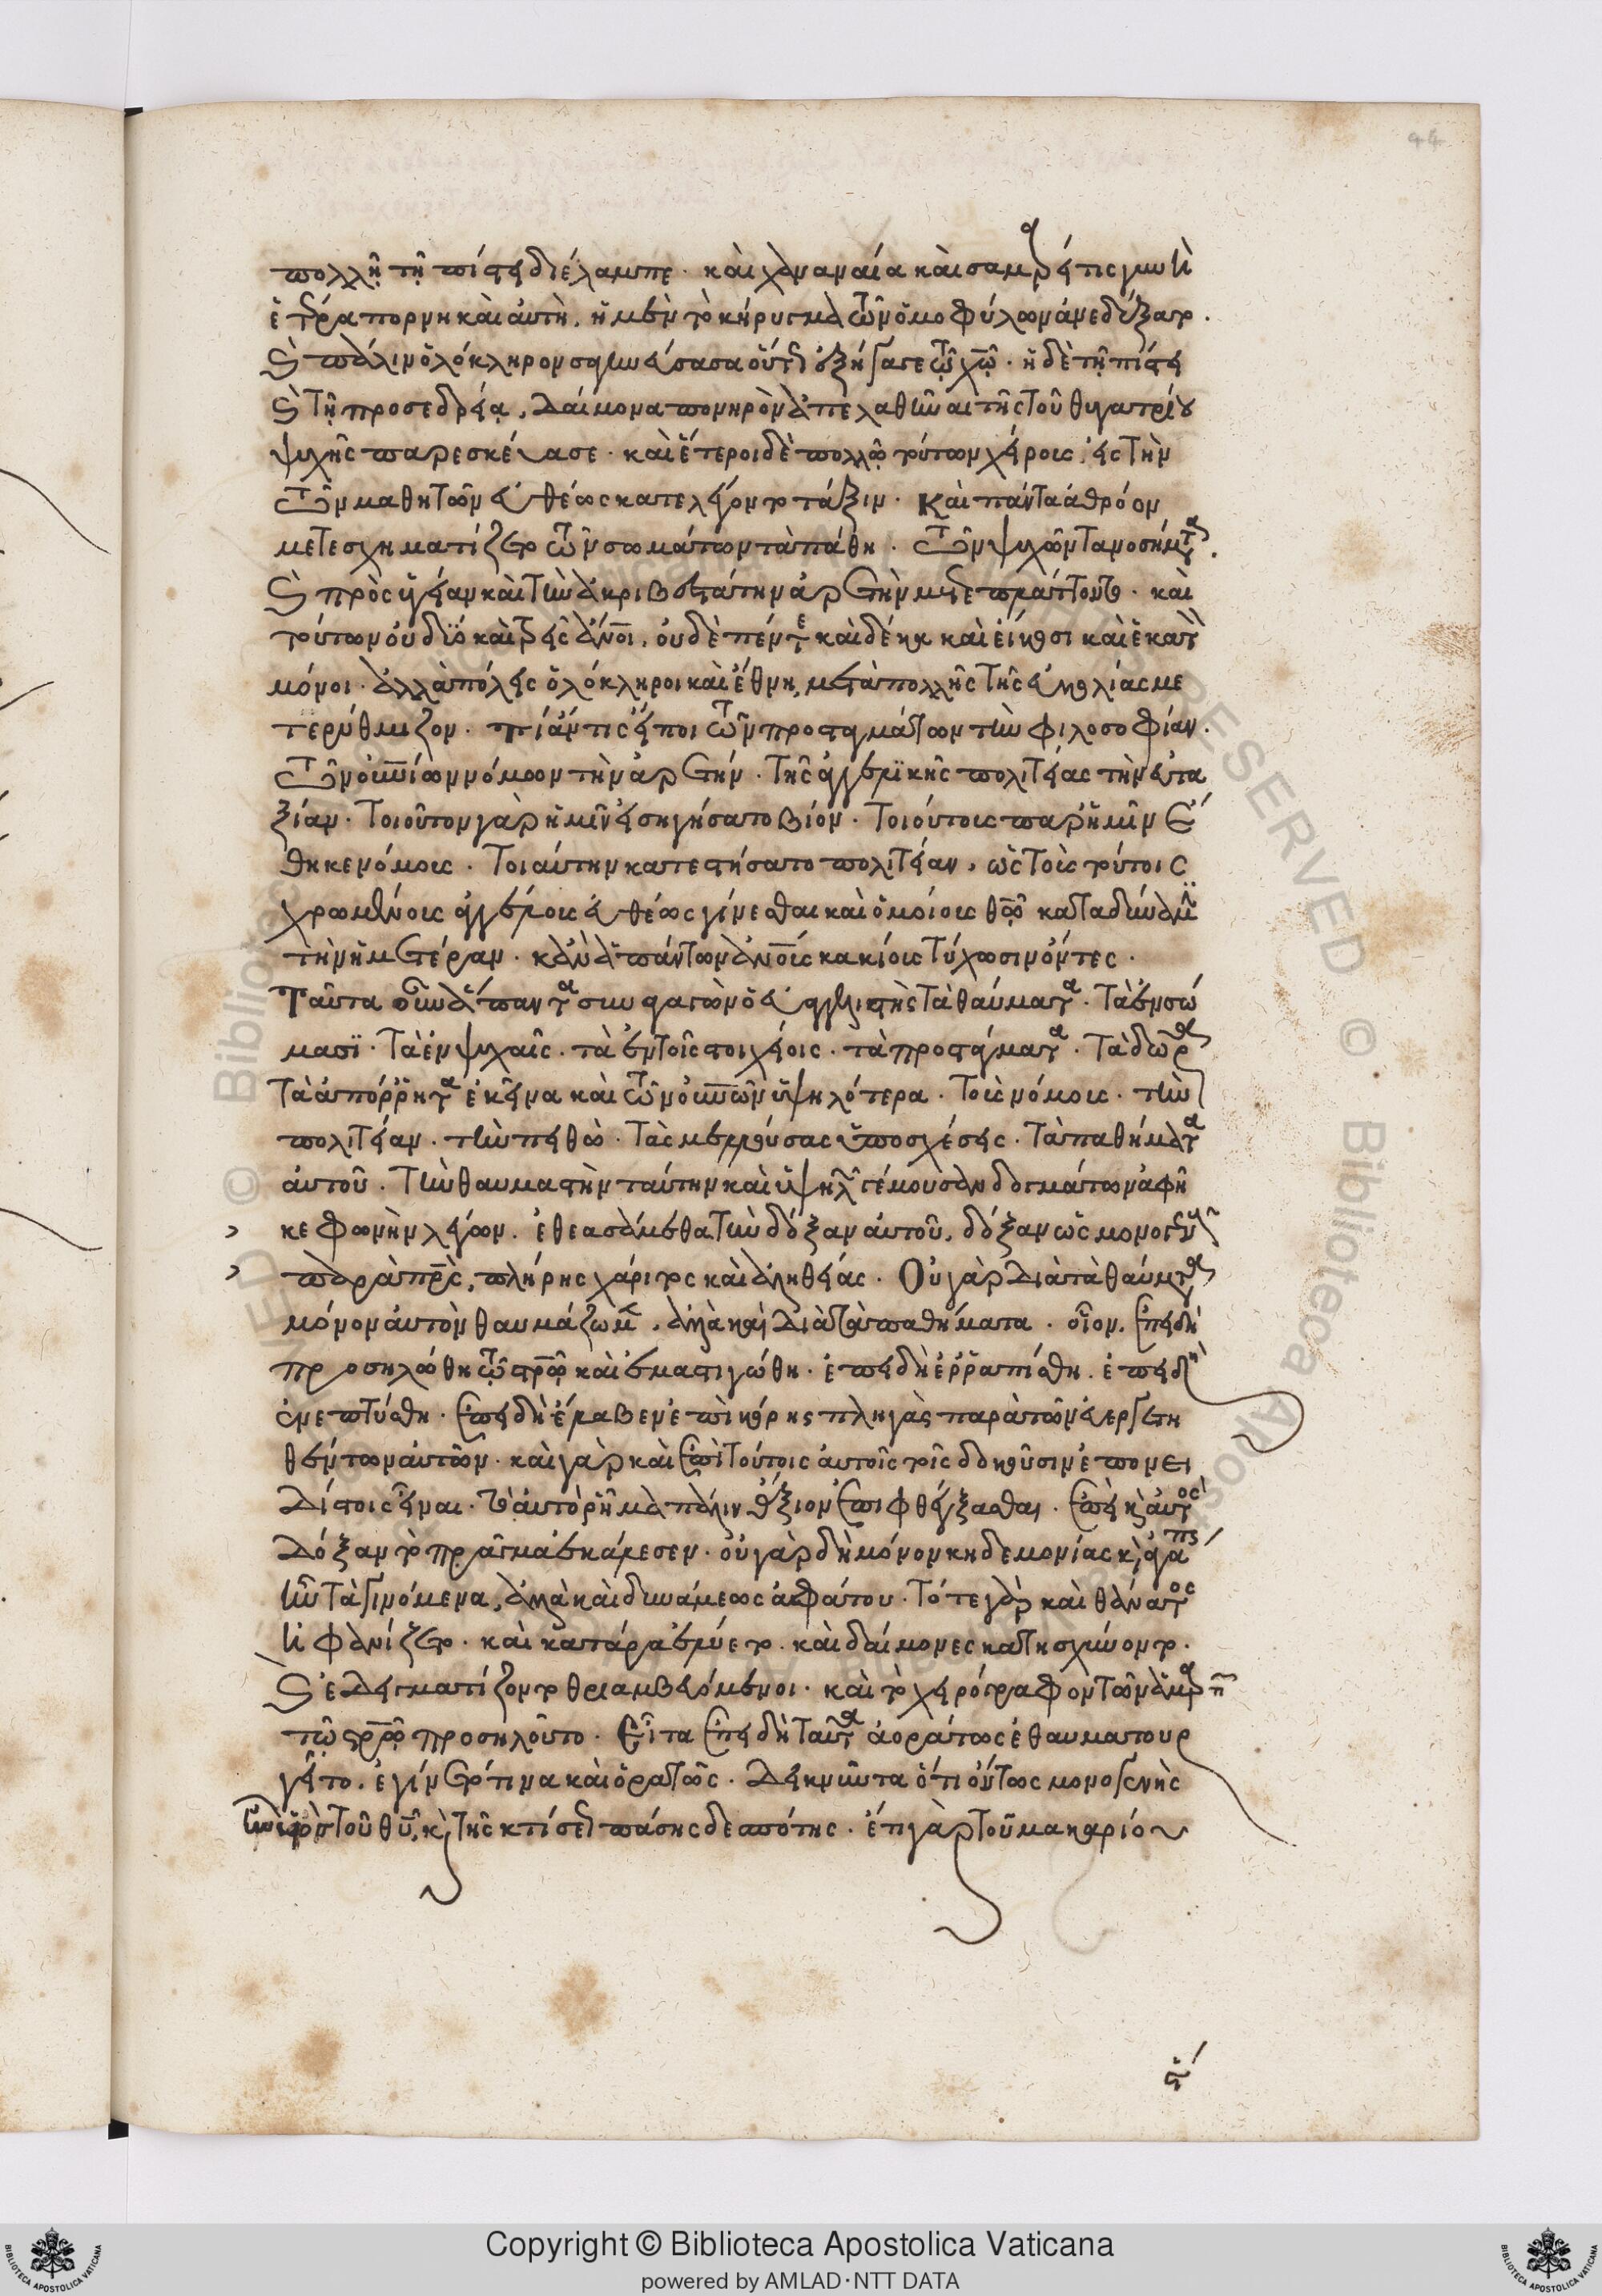 44
πολλῇ τῇ πίστει διέλαμπε. καὶ χαναναία καὶ σαμαρεῖτις γυνὴ
ἑτέρα πόρνη καὶ αὐτὴ, ἡ μὲν τὸ κήρυγμα τῶν ὁμοφύλων ἀνεδέξατο.
καὶ πόλιν ὁλόκληρον σαγηνεύσασα οὕτως ἐξήγαγε τῷ χῶ. ἡ δὲ τῇ πίστει
καὶ τῇ προσεδρεία, δαίμονα πονηρὸν ἀπελαθῆναι τῆς τοῦ θυγατρίου
ψυχῆς παρεσκεύασε. καὶ ἕτεροι δὲ πολλῶ τούτων χείρους, εἰς τὴν
τῶν μαθητῶν εὐθέως κατελέγοντο τάξιν. Καὶ πάντα ἀθρόον
μετεσχηματίζετο τῶν σωμάτων τὰ πάθη. τῶν ψυχῶν τὰ νοσήματα.
καὶ πρὸς ὑγείαν καὶ τὴν ἀκριβεστάτην ἀρετὴν μετεπλάττοντο. καὶ
τούτων οὐ δύο καὶ τρεῖς ἄνοι, οὐδὲ πέντε καὶ δέκα καὶ εἴκοσι καὶ ἑκατὸν
μόνοι. ἀλλὰ πόλεις ὁλόκληροι καὶ ἔθνη, μετὰ πολλῆς τῆς εὐκολίας με
τερύθμιζον. τί ἄν τις εἴποι τῶν προσταγμάτων τὴν φιλοσοφίαν.
τῶν οὐνίων νόμων τὴν ἀρετήν. τῆς ἀγγελικῆς πολιτείας τὴν εὐτα
ξίαν. Τοιοῦτον γὰρ ἡμῖν εἰσηγήσατο βίον. Τοιούτους παρ' ἡμῖν ἔ
θηκε νόμους. Τοιαύτην κατεστήσατο πολιτείαν, ὡς τοὺς τούτοις
χρωμένους ἀγγέλους εὐθέως γίνεσθαι καὶ ὁμοίους θῶ κατὰ δύναμιν
τὴν ἡμετέραν. κἂν ἁπάντων ἀνῶν κακίους τύχωσιν ὄντες.
Ταῦτα οὖν ἅπαντα συναγαγὼν ὁ εὐαγγελιστὴς τὰ θαύματα. Τὰ ἐν σώ
μασϊ. Τὰ ἐν ψυχαῖς. τὰ ἐν τοῖς στοιχείοις. τὰ προστάγματα. Τὰ δῶρα
Τὰ ἀπόρρητα ἐκεῖνα καὶ τῶν οὐνῶν ὑψηλότερα. Τοὺς νόμους. τὴν
πολιτείαν. τὴν πειθώ. Τὰς μελλούσας ὑποσχέσεις. Τὰ παθήματα
αὐτοῦ. Τὴν θαυμαστὴν ταύτην καὶ ὑψηλῶν γέμουσαν δογμάτων ἀφῆ
κε φωνὴν λέγων. ἐθεασάμεθα τὴν δόξαν αὐτοῦ, δόξαν ὡς μονογενοῦς
παρὰ πρς, πλήρης χάριτος καὶ ἀληθείας. Οὐ γὰρ διὰ τὰ θαύματα
μόνον αὐτὸν θαυμάζομεν, ἀλλὰ καὶ διὰ τὰ παθήματα. οἷον, ἐπειδὴ
προσηλώθη τῷ στρῶ καὶ ἐμαστιγώθη. ἐπειδὴ ἐρραπίσθη. ἐπειδὴ
ἐνεπτύσθη. ἐπειδὴ ἔλαβεν ἐπὶ κόρης πληγὰς παρὰ τῶν εὐεργετη
θέντων αὐτῶν. καὶ γὰρ καὶ ἐπὶ τούτοις αὐτοῖς τοῖς δοκοῦσιν ἐπονει
δίστοις εἶναι. τὸ αὐτὸ ῥῆμα πάλιν ἄξιον ἐπιφθέγξασθαι. ἐπεὶ καὶ αὐτὸς
δόξαν τὸ πρᾶγμα ἐκάλεσεν. οὐ γὰρ δὴ μόνον κηδεμονίας καὶ ἀγάπης
ἦν τὰ γινόμενα, ἀλλὰ καὶ δυνάμεως ἀφάτου. Τότε γὰρ καὶ θάνατος
ἠφανίζετο. καὶ κατάρα ἐλύετο. καὶ δαίμονες κατησχύνοντο.
καὶ ἐδειγματίζοντο θριαμβευόμενοι. καὶ τὸ χειρόγραφον τῶν ἁμαρτιῶν
τῶ στρῶ προσηλοῦτο. Εἶτα ἐπειδὴ ταῦτα ἀοράτως ἐθαυματουρ
γεῖτο, ἐγίνετό τινα καὶ ὁρατῶς. Δεικνῦντα ὅτι ὄντως μονογενὴς
τοῦ θυ, καὶ τῆς κτίσεως πάσης δεσπότης. ἔτι γὰρ τοῦ μακαρίου